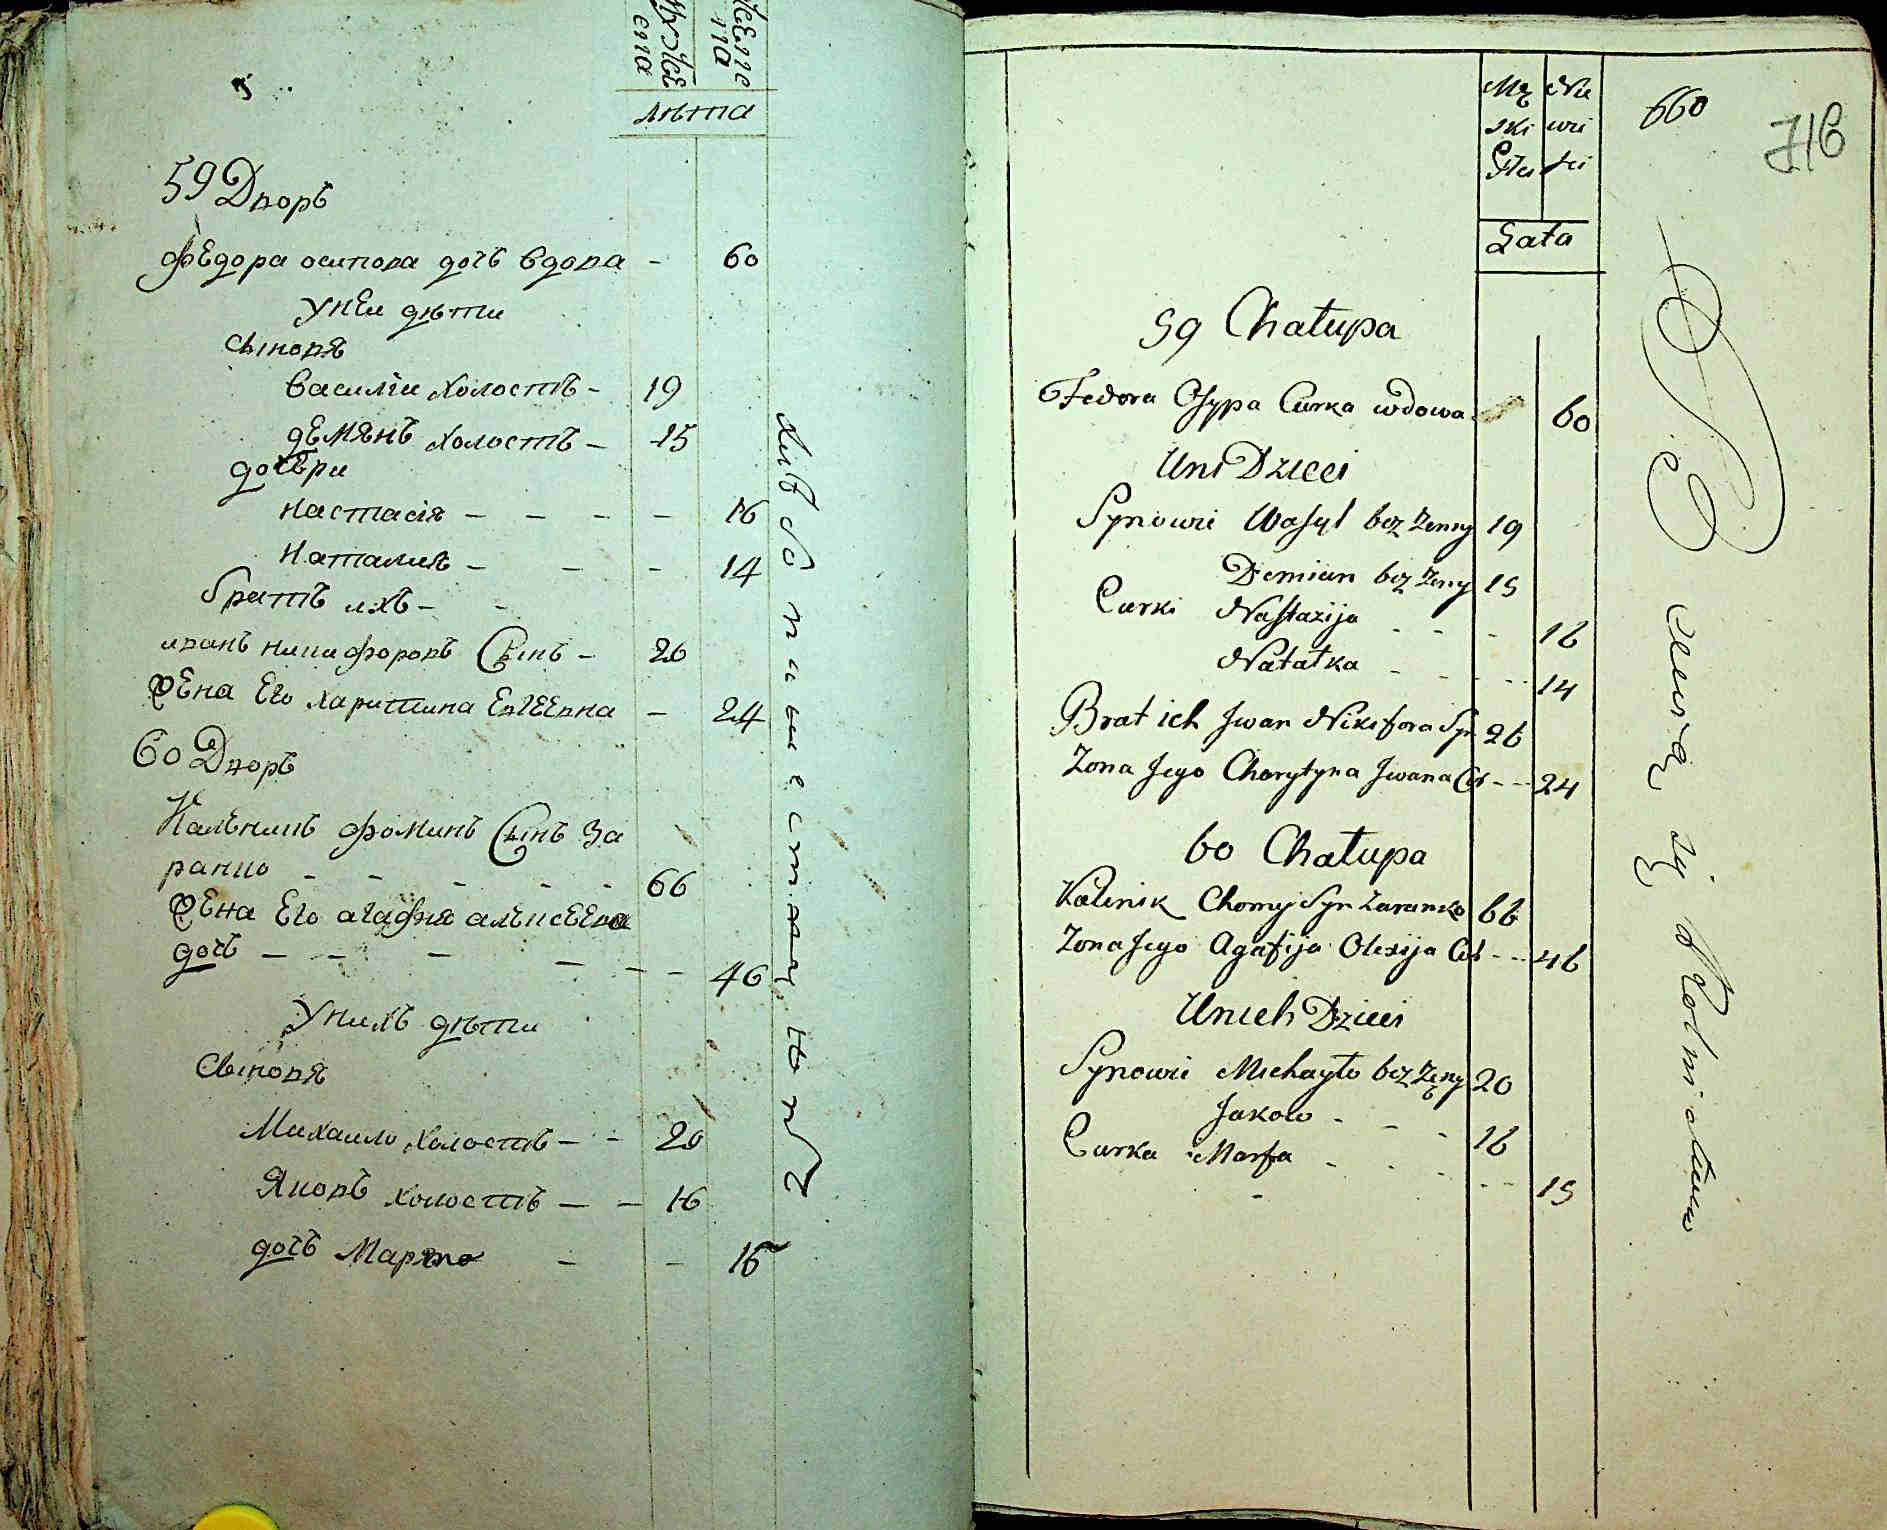 мужеска
женска
лѣта
59 Дворъ
Федора осипова дочь вдова - 60
У неи дѣти
Сыновя
Василiи холостъ - 19
Демянъ холостъ - 15
дочери
Настасiя - - - - 16
Наталия - - - 14
братъ ихъ - -
иванъ никифоровъ Сынъ - 26
жена Его харитина - 24
60 Дворъ
Калѣникъ фоминъ Сынъ За
ранко - - - - - 66
жена Его агафия алексеева
дочь - - - - - - 46
У нихъ дѣти
Сыновя
Михаило холостъ - - 20
Яковъ холостъ - - 16
дочь Марѳа - - 15
хлѣбопашествомъ
660
716
Męski
Niewieści
Płeć
Lata
59 Chałupa
Fedora Osypa Curka wdowa 60
U ni Dzieci
Synowie Wasyl bez Zenny 19
Demian bez Zeny 15
Curki Nastazija - - - 16
Natałka - - - - 14
Brat ich Jwan Nikifora Syn 26
Zona Jego Charytyna Jwana Cór - - 24
60 Chałupa
Kalinik Chomy Syn Zaranko 66
Zona Jego Agafija Olexija Cór - - 46
U nich Dzieci
Synowie Michayło bez Zeny 20
Jakow - - - 16
Curka Marfa - - - - - 15
się Rolnictwem